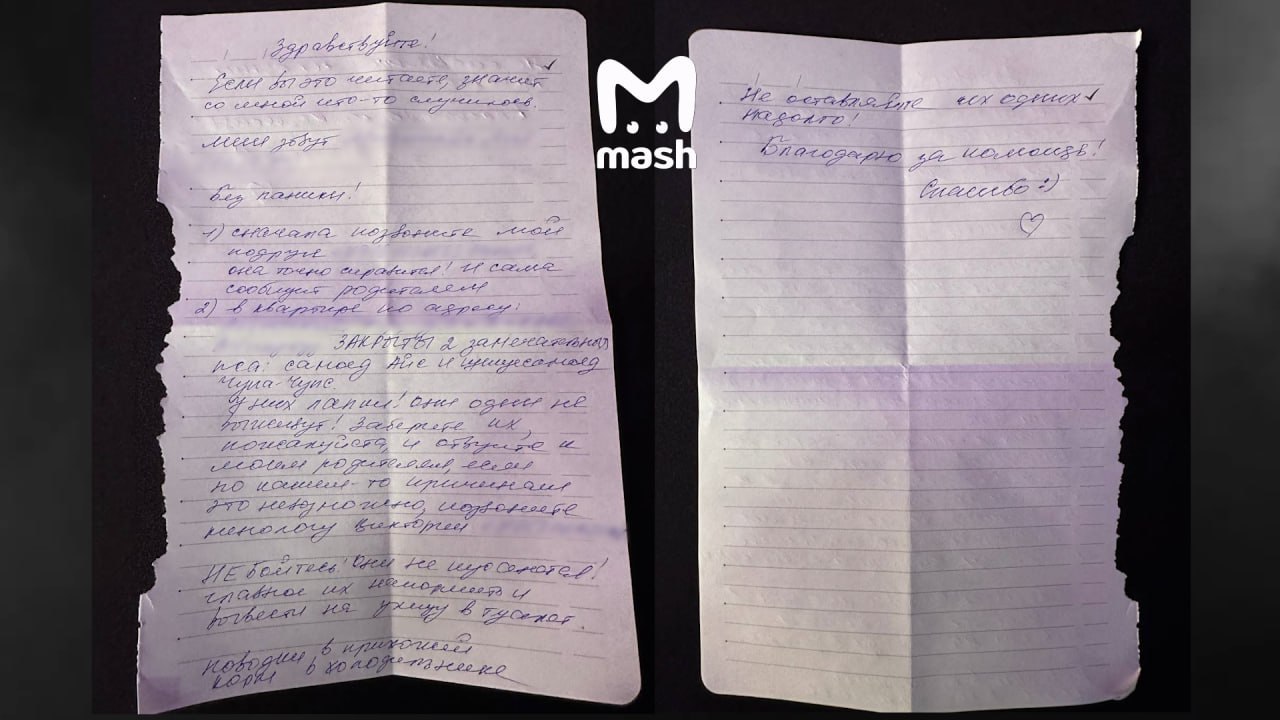 Здравствуйте!
Если вы это читаете, значит
со мной что-то случилось.
Меня зовут
Без паники!
1) сначала позвоните моей
подруге
она точно справится! И сама
сообщит родителям
2) в квартире по адресу:
ЗАКРЫТЫ 2 замечательных
пса: самоед Айс и
Чупа-Чупс.
У них лапки! Они одни не
выживут! Заберите их,
пожалуйста, и отвезите к
моим родителям, если
по каким-то причинам
это невозможно, позвоните
кинологу Виктории
НЕ бойтесь! Они не кусаются!
Главное их накормить и
вывести на улицу в туалет.
поводки в прихожей
корм в холодильнике
mash
Не оставляйте их одних
надолго!
Благодарю за помощь!
Спасибо :)